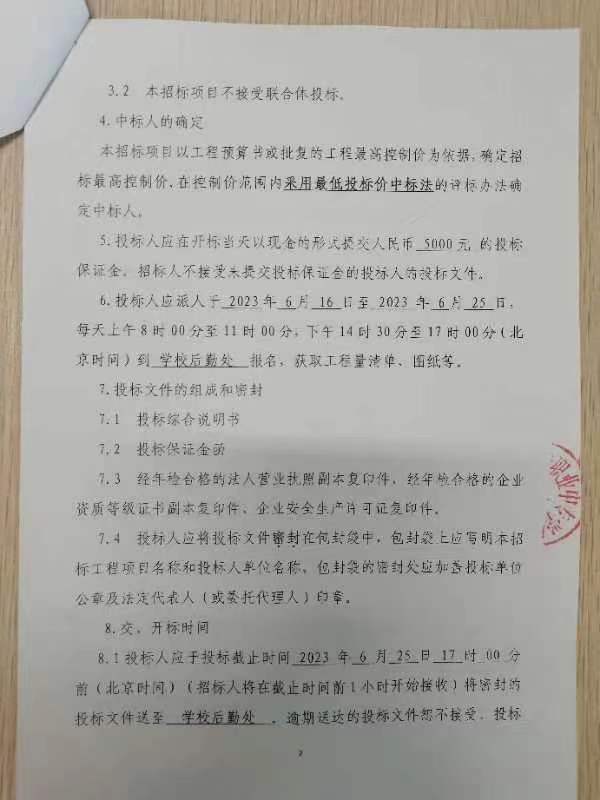 3.2 本招标项目不接受联合体投标。
4.中标人的确定
本招标项目以工程预算书或批复的工程最高控制价为依据,确定招
标最高控制价,在控制价范围内采用最低投标价中标法的评标办法确
定中标人。
5.投标人应在开标当天以现金的形式提交人民币 5000元 的投标
保证金。招标人不接受未提交投标保证金的投标人的投标文件。
6.投标人应派人于 2023 年 6 月 16 日至 2023 年 6 月 25 日,
每天上午8时00分至11时00分,下午14时30分至17时00分(北
京时间)到 学校后勤处 报名,获取工程量清单、图纸等。
7.投标文件的组成和密封
7.1 投标综合说明书
7.2 投标保证金函
7.3 经年检合格的法人营业执照副本复印件、经年检合格的企业
资质等级证书副本复印件、企业安全生产许可证复印件。
7.4 投标人应将投标文件密封在包封袋中,包封袋上应写明本招
标工程项目名称和投标人单位名称。包封袋的密封处应加盖投标单位
公章及法定代表人(或委托代理人)印章。
8.交、开标时间
8.1投标人应于投标截止时间 2023 年 6 月 25 日 17 时 00 分
前(北京时间)(招标人将在截止时间前1小时开始接收)将密封的
投标文件送至 学校后勤处 。逾期送达的投标文件恕不接受。投标
2
职业中